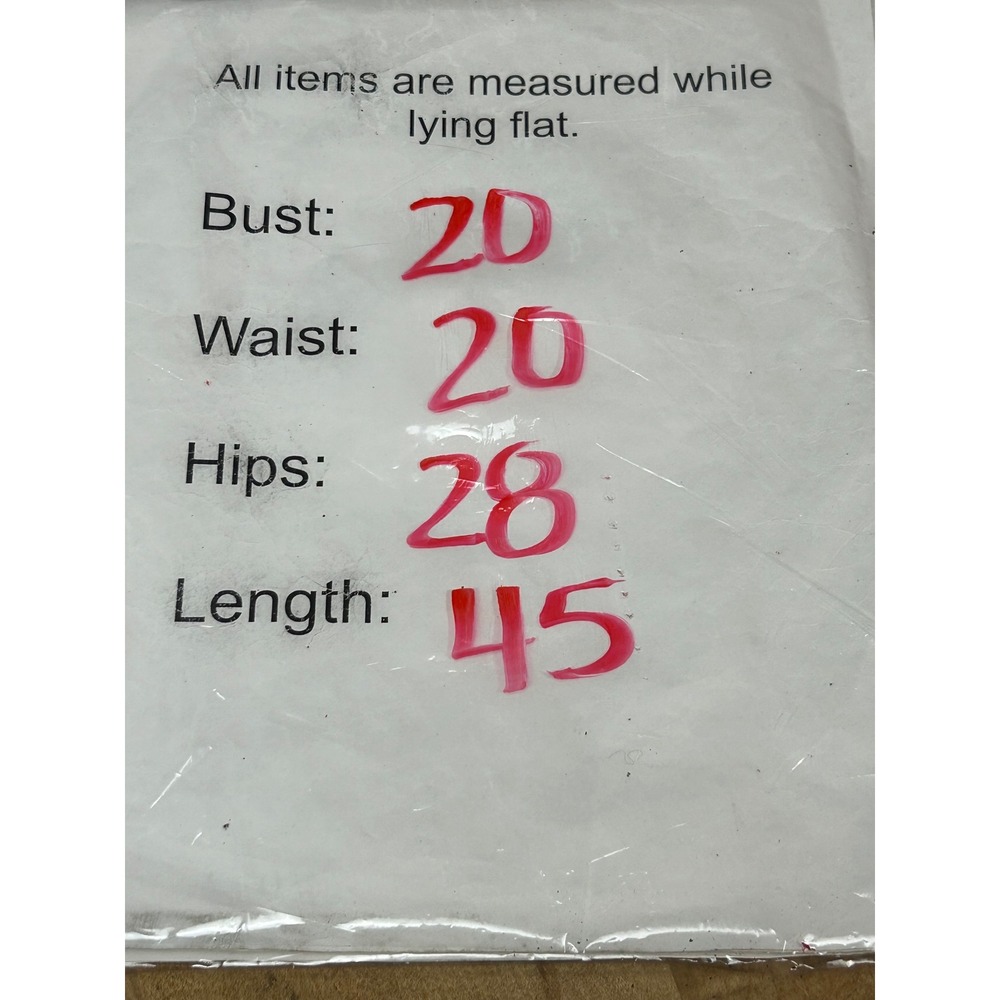 All items are measured while
lying flat.
Bust: 20
Waist: 20
Hips: 28
Length: 45